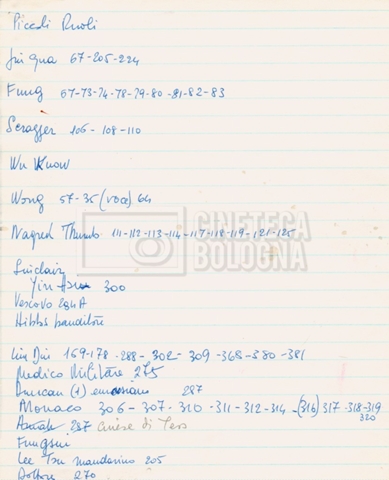 Piccoli Ruoli
Jin Qua 67-205-224
Fung 57-73-74-78-79-80-81-82-83
Scragger 106-108-110
Wu Kwow
Wong 57-35 (voce) 64
Nagrek Thumb 111-112-113-114-117-118-119-121-125
CINETECA
BOLOGNA
Sinclair
Yin 300
Vescovo 284A
Hibbs banditore
Lim Din 169-178-288-302-309-368-380-381
Medico Militare 275
Duncan (1) 287
Monaco 306-307-310-311-312-314-(316) 317-318-319
320
Amah 287 cinese di
Fungsui
Lee Tsu mandarino 205
Dottore 270